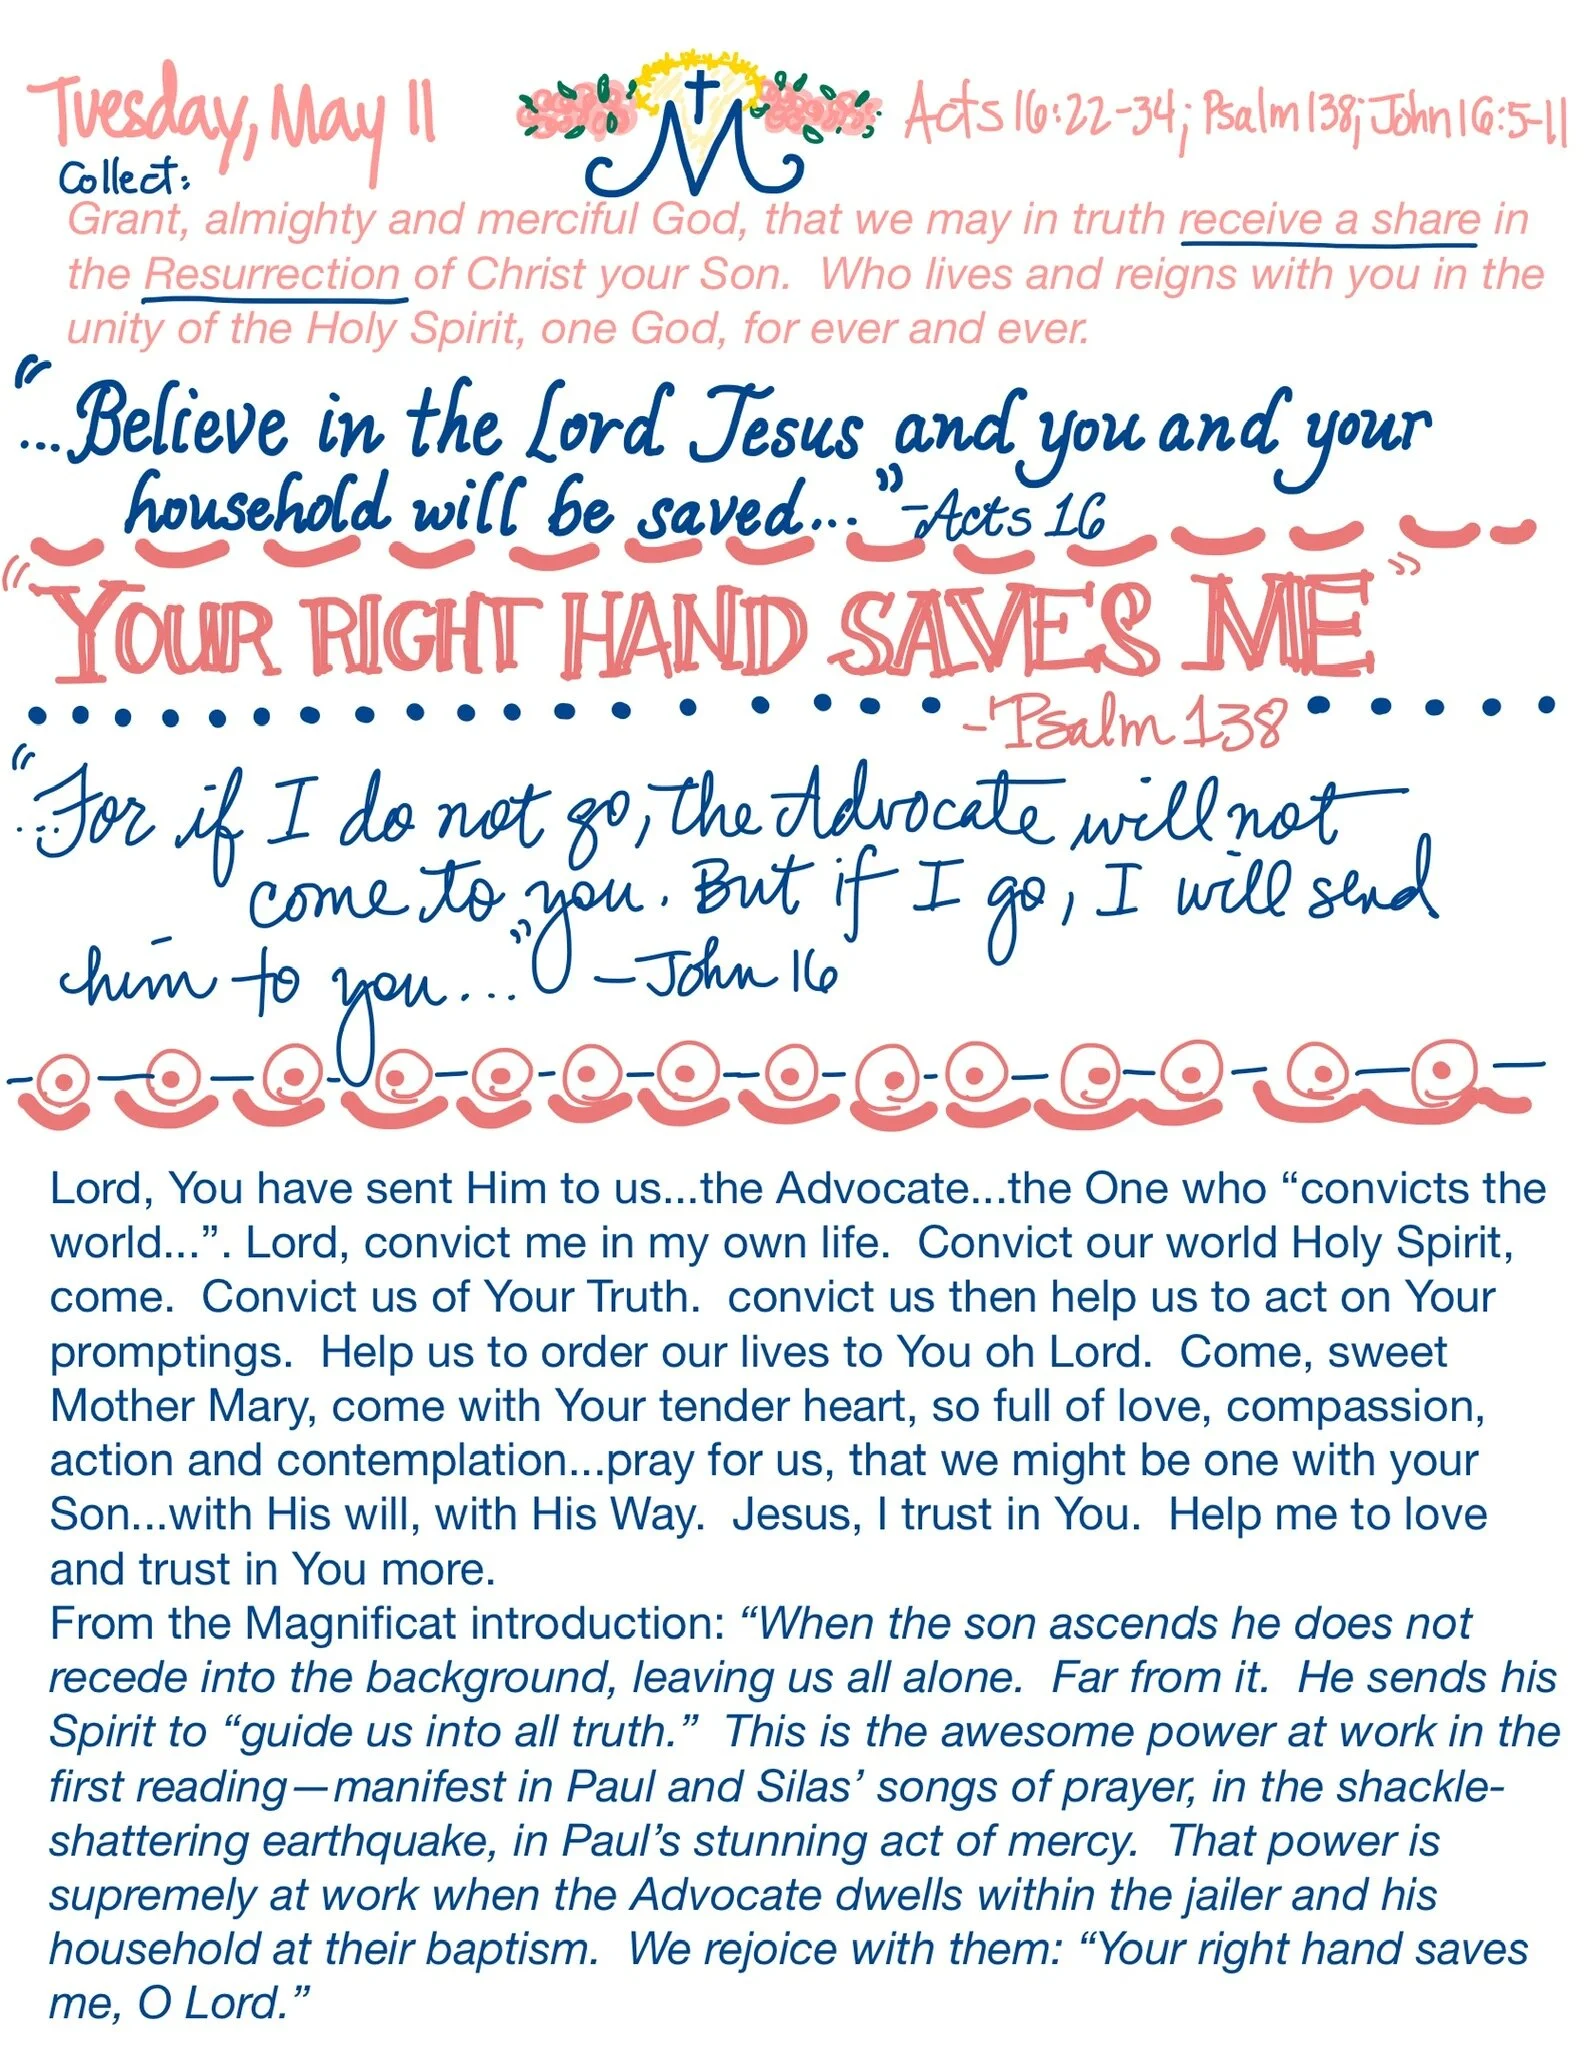 Tuesday, May 11
M
Acts 16:22-34; Psalm 138; John 16:5-11
Collect:
Grant, almighty and merciful God, that we may in truth receive a share in
the Resurrection of Christ your Son.  Who lives and reigns with you in the
unity of the Holy Spirit, one God, for ever and ever.
"...Believe in the Lord Jesus and you and your
household will be saved..." -Acts 16
"YOUR RIGHT HAND SAVES ME"
-Psalm 138
"...For if I do not go, the Advocate will not
come to you. But if I go, I will send
him to you..." -John 16
Lord, You have sent Him to us...the Advocate...the One who “convicts the
world...”. Lord, convict me in my own life.  Convict our world Holy Spirit,
come.  Convict us of Your Truth.  convict us then help us to act on Your
promptings.  Help us to order our lives to You oh Lord.  Come, sweet
Mother Mary, come with Your tender heart, so full of love, compassion,
action and contemplation...pray for us, that we might be one with your
Son...with His will, with His Way.  Jesus, I trust in You.  Help me to love
and trust in You more.
From the Magnificat introduction: “When the son ascends he does not
recede into the background, leaving us all alone.  Far from it.  He sends his
Spirit to “guide us into all truth.”  This is the awesome power at work in the
first reading—manifest in Paul and Silas’ songs of prayer, in the shackle-
shattering earthquake, in Paul’s stunning act of mercy.  That power is
supremely at work when the Advocate dwells within the jailer and his
household at their baptism.  We rejoice with them: “Your right hand saves
me, O Lord.”